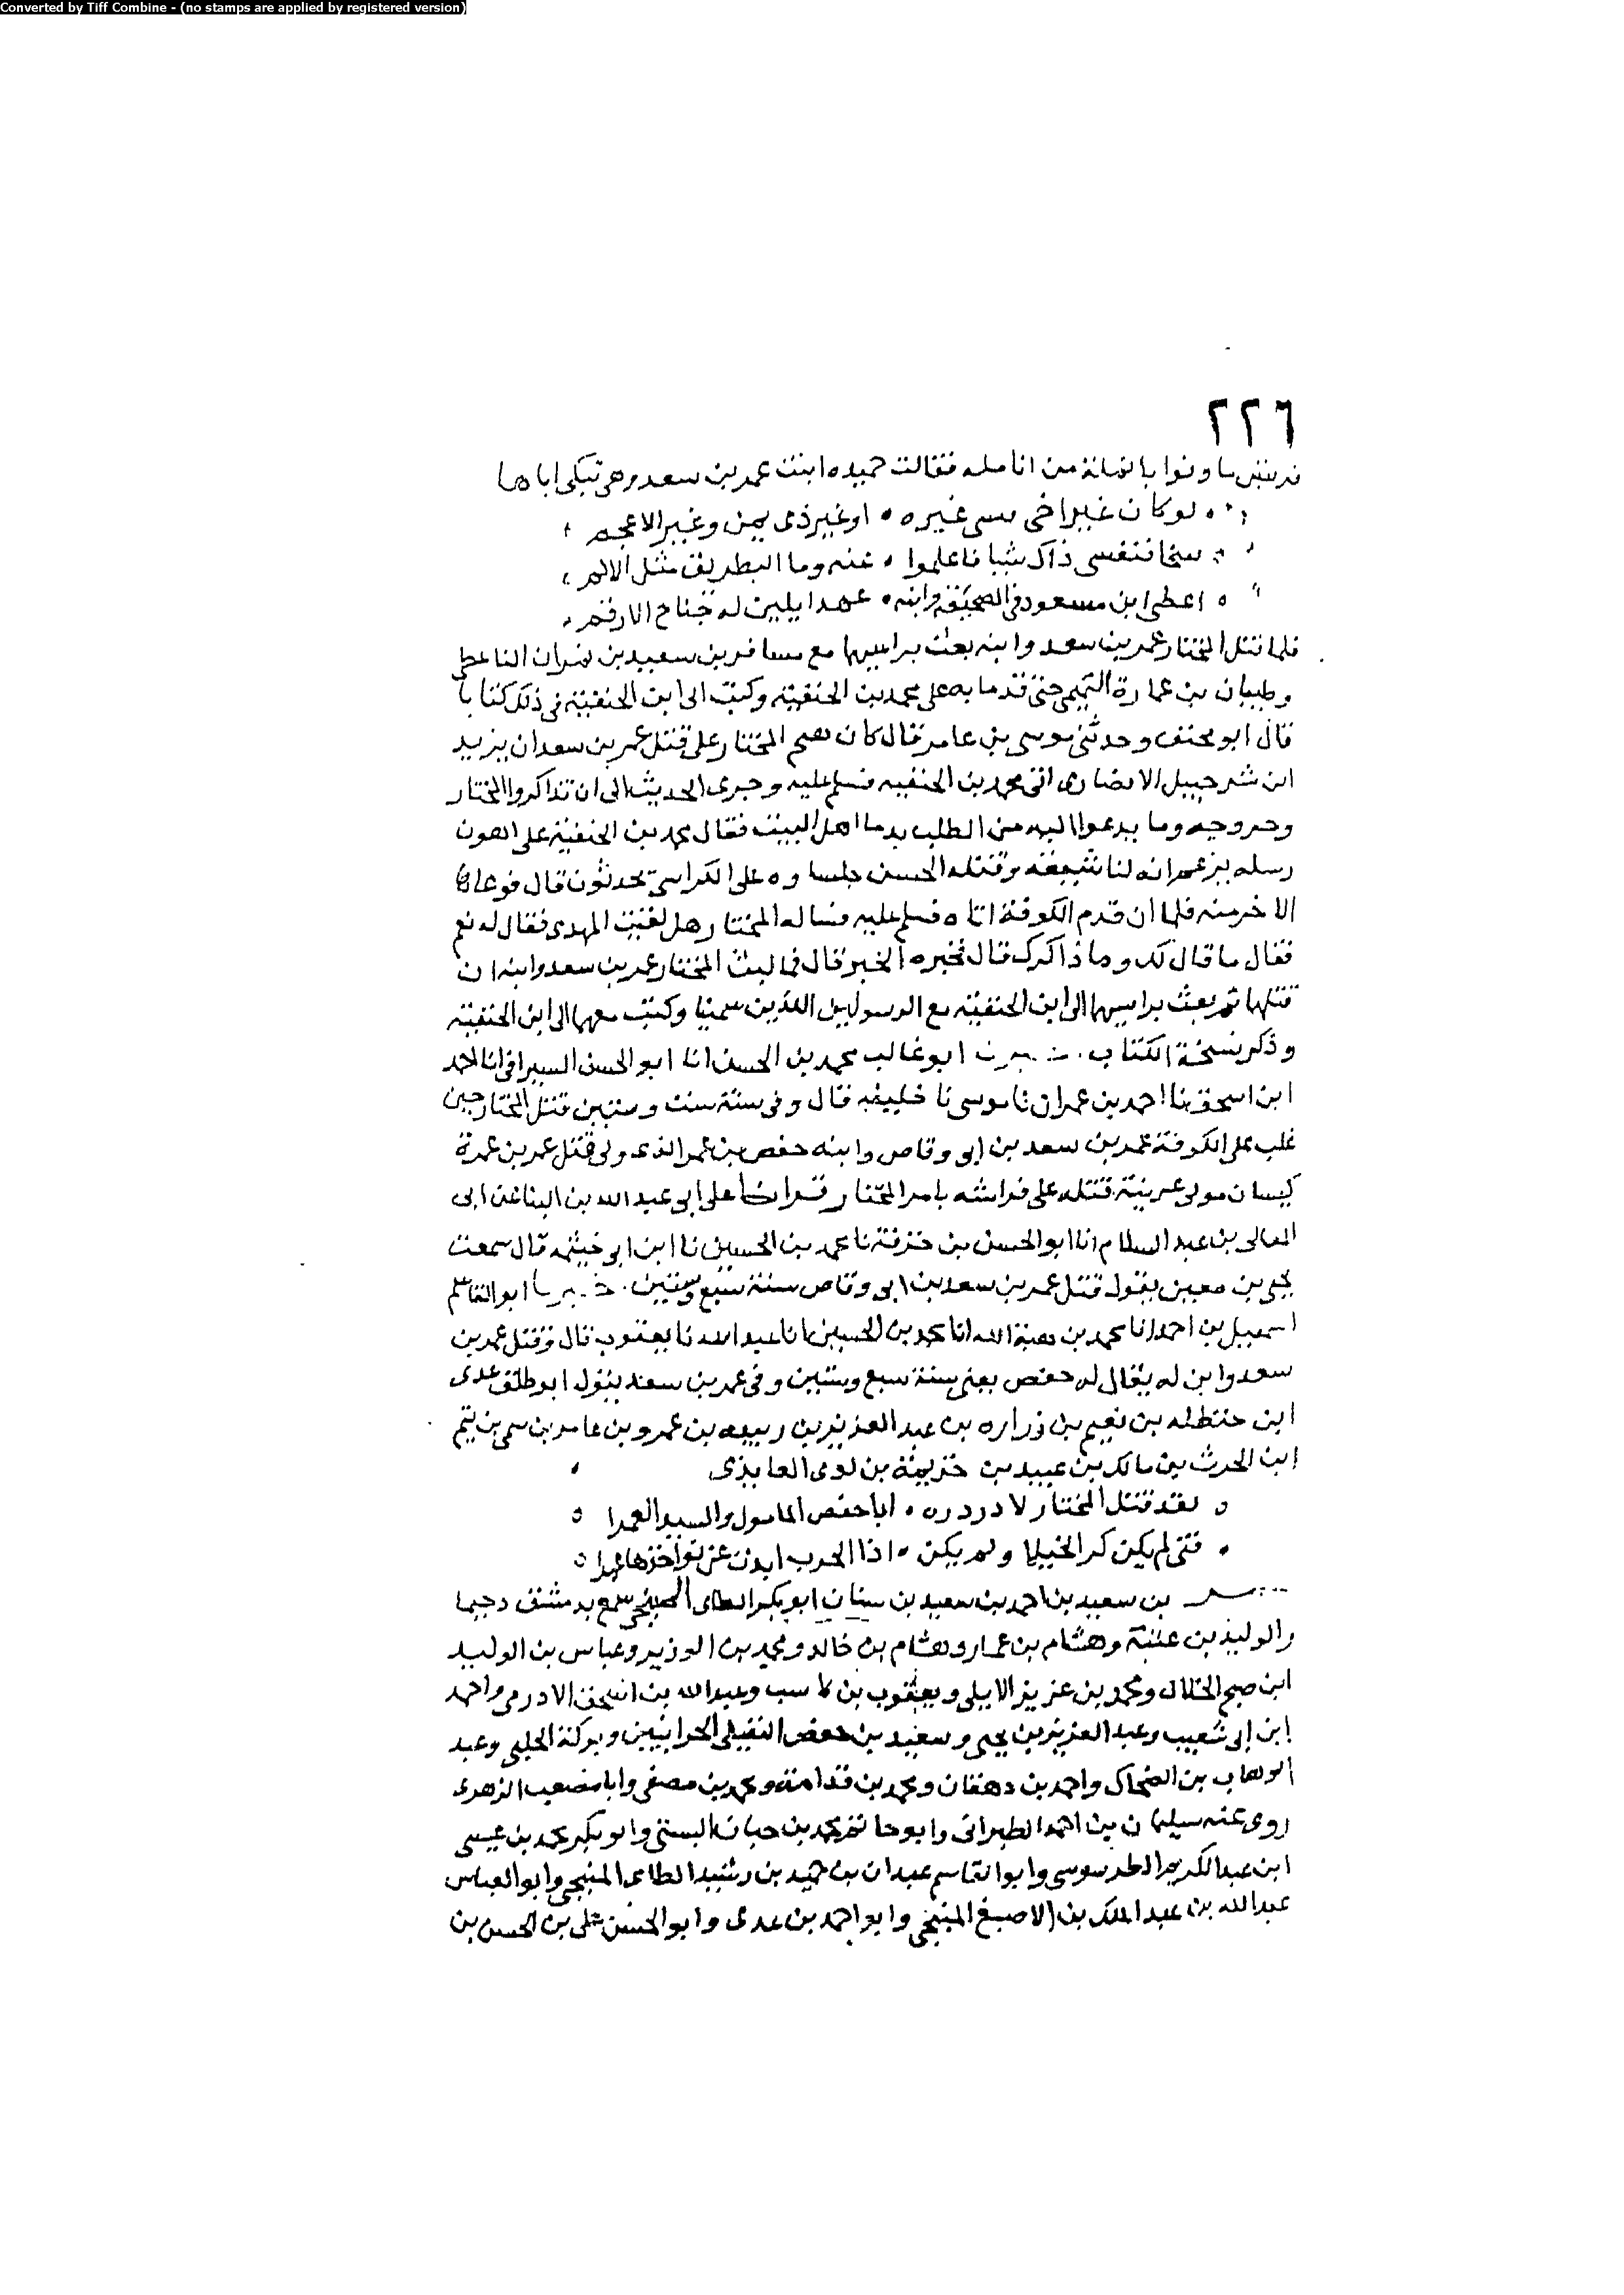 Converted by Tiff Combine - (no stamps are applied by registered version)
٢٢٦
قريش ما وفوا بانملة من انامله فقالت حميده ابنت عمر بن سعد وهي تبكي اباها
لو كان غير اخي قسي غيره ، او غير ذي يمن وغير الاعجم
سخا بنفسي ذاك شيا فاعلموا ، عنه وما البطريق مثل الالام
اعطى ابن مسعود في الصحيفة وابنه ، عهدا يلين له جناح الارقم
فلما قتل المختار عمر بن سعد وابنه بعث براسيهما مع مسافر بن سعيد بن نمران الناعطي
وظبيان بن عمارة التميمي حتى قدما به على محمد بن الحنفيه وكتب الى ابن الحنفية في ذلك كتابا
قال ابو مخنف وحدثني موسى بن عامر قال كان هيج المختار على قتل عمر بن سعد ان يزيد
ابن شرحبيل الانصارى اتى محمد بن الحنفيه فسلم عليه وجرى الحديث الى ان تذاكروا المختار
وخروجه وما يدعوا اليه من الطلب بدما اهل البيت فقال محمد بن الحنفية على اهون
رسله يزعم انه لنا شيعة وقتله الحسين جلساوه على الكراسي يحدثون قال فوعاها
الاخر منه فلما ان قدم الكوفة اتاه فسلم عليه فساله المختار هل لقيت المهدى فقال له نعم
فقال ما قال لك وما ذاكرك قال فخبره الخبر قال فما لبث المختار عمر بن سعد وابنه ان
قتلهما ثم بعث براسيهما الى ابن الحنفية مع الرسولين اللذين سمينا وكتب معهما الى ابن الحنفية
وذكر نسخة الكتاب ابو غالب محمد بن الحسن انا ابو الحسن السيرافي انا احمد
ابن اسحق نا احمد بن عمران نا موسى نا خليفه قال وفي سنة ست وستين قتل المختار حين
غلب على الكوفة عمر بن سعد بن ابى وقاص وابنه حفص بن عمر الذى ولى قتل عمر بن عمرة
كيسان مولى عرينة قتله على فراشه بامر المختار على ابى عبد الله بن البنا عن ابى
المعالى بن عبد السلام انا ابو الحسن بن خزفة نا محمد بن الحسين نا ابن ابى خيثمه قال سمعت
يحيى بن معين يقول قتل عمر بن سعد بن ابى وقاص سنة سبع وستين ابو القاسم
اسمعيل بن احمد انا محمد بن هبة الله انا محمد بن الحسين انا عبد الله نا يعقوب قال وقتل عمر بن
سعد وابن له يقال له حفص يعني سنة سبع وستين وفى عمر بن سعد يقول ابو طلق عدى
ابن حنظله بن نعيم بن زراره بن عبد العزيز بن ربيعه بن عمرو بن عامر بن سمى بن تيم
ابن الحرث بن مالك بن عبيد بن خزيمة بن لوى العايذى
لقد قتل المختار لا در دره ، ابا حفص المامول والسيد الغمرا
فتى لم يكن كز الخيلا ولم يكن ، اذا الحرب ابدت عن نواجذها
بن سعيد بن احمد بن سعيد بن سنان ابو بكر الطاى المنبجي سمع بدمشق دحيما
والوليد بن عتبة وهشام بن عمار وهشام بن خالد ومحمد بن الوزير وعباس بن الوليد
ابن صبح الخلال ومحمد بن عزيز الايلى ويعقوب بن كاسب وعبد الله بن اسحق الادرمى واحمد
ابن ابى شعيب وعبد العزيز بن يحيى وسعيد بن حفص النفيلى الحرانيين وبركة الحلبي وعبد
الوهاب بن الضحاك واحمد بن دهقان ومحمد بن قدامة ومحمد بن مصفى وابا مصعب الزهرى
روى عنه سليمان بن احمد الطبرانى وابو حاتم محمد بن حبان البستي وابو بكر محمد بن عيسى
ابن عبد الكريم الطرسوسى وابو القاسم عبدان بن حميد بن رشيد الطاى المنبجي وابو العباس
عبد الله بن عبد الملك بن الاصبغ المنبجي وابو احمد بن عدى وابو الحسن على بن الحسن بن